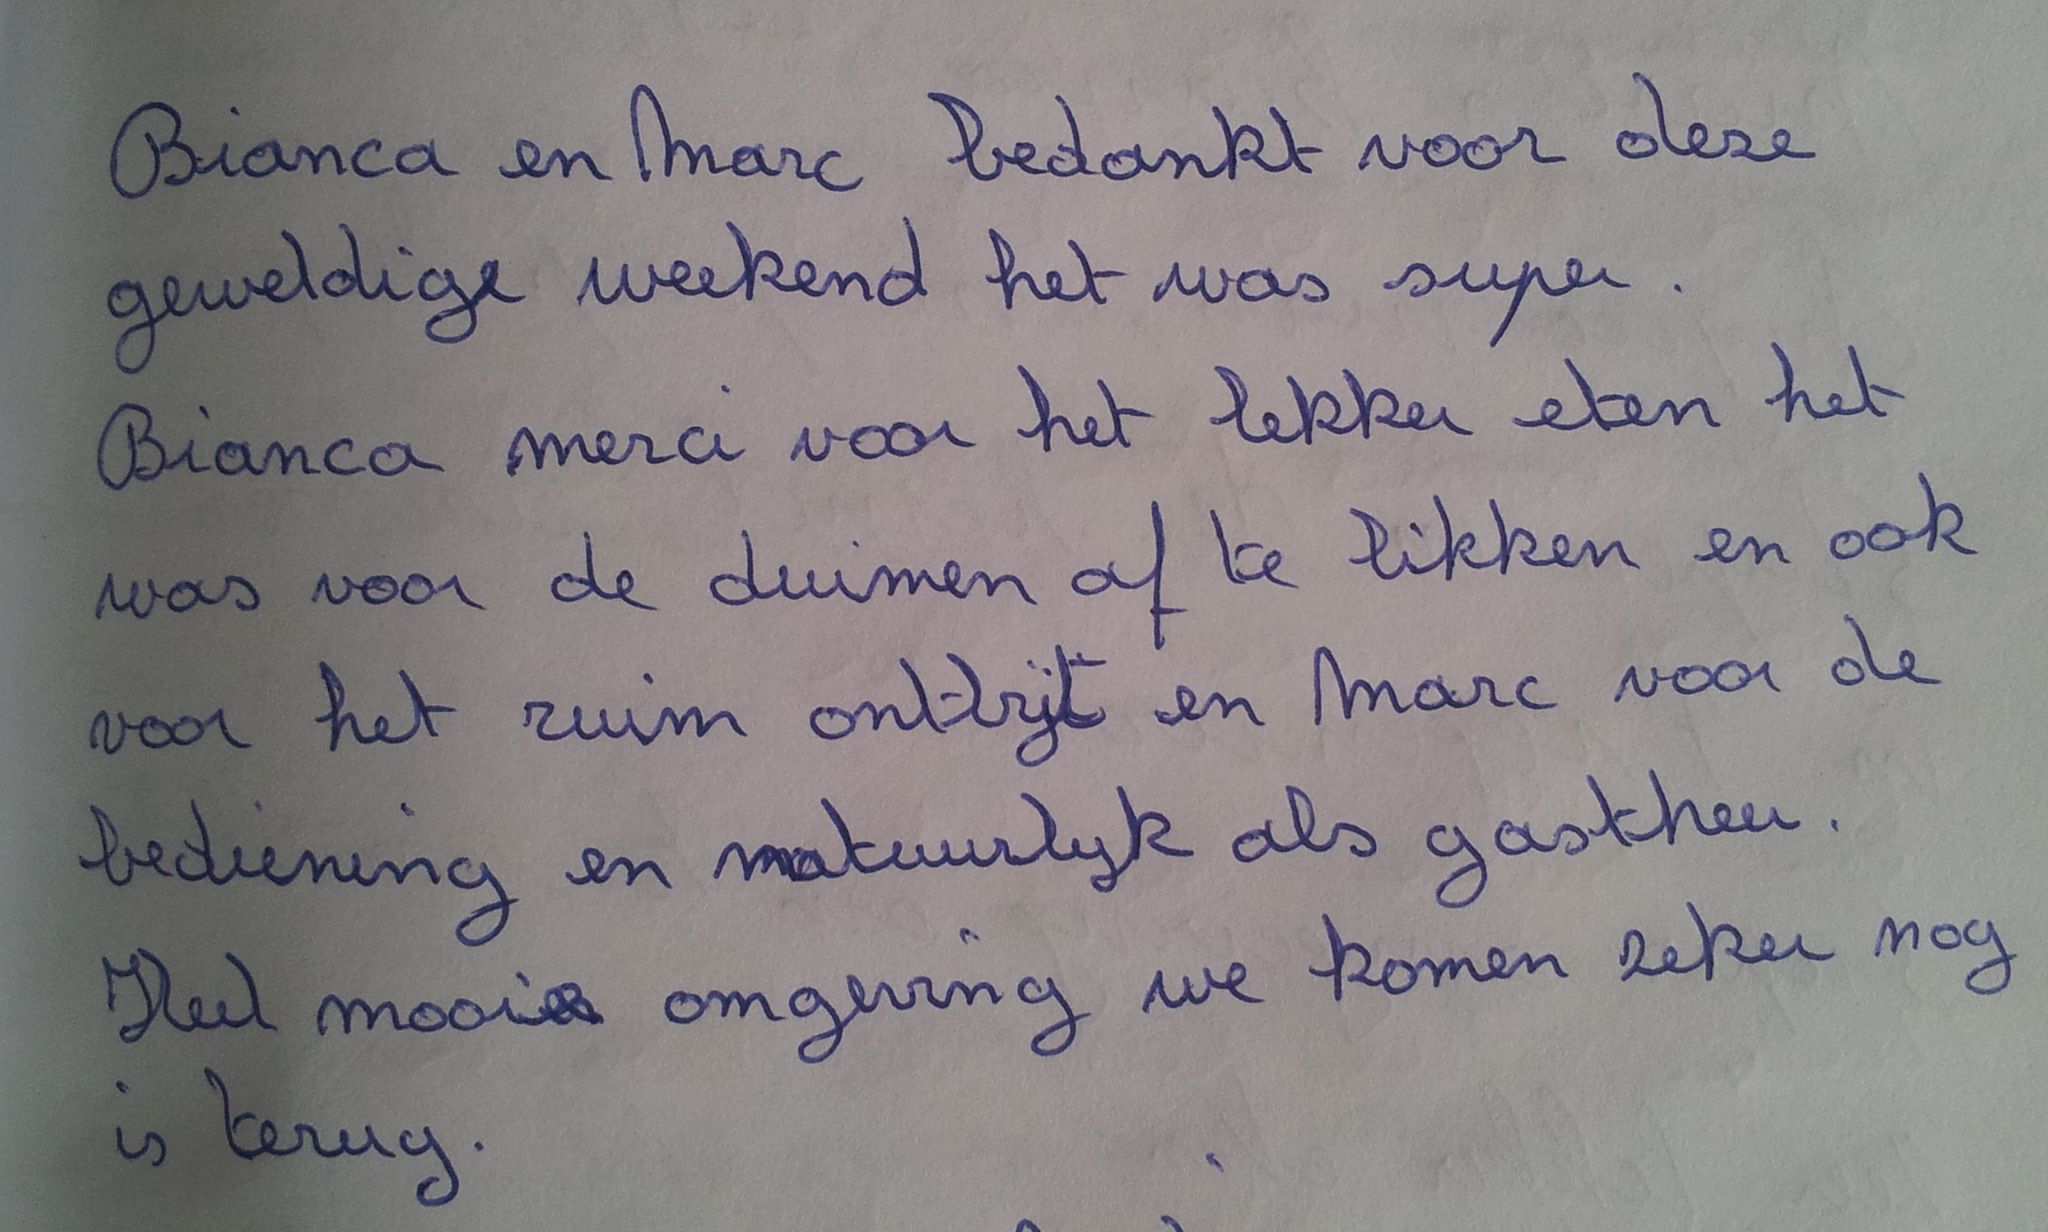 Bianca en Marc bedankt voor deze
geweldige weekend het was super.
Bianca merci voor het lekker eten het
was voor de duimen af te likken en ook
voor het ruim ontbijt en Marc voor de
bediening en natuurlijk als gastheer.
Heel mooie omgeving we komen zeker nog
is terug.